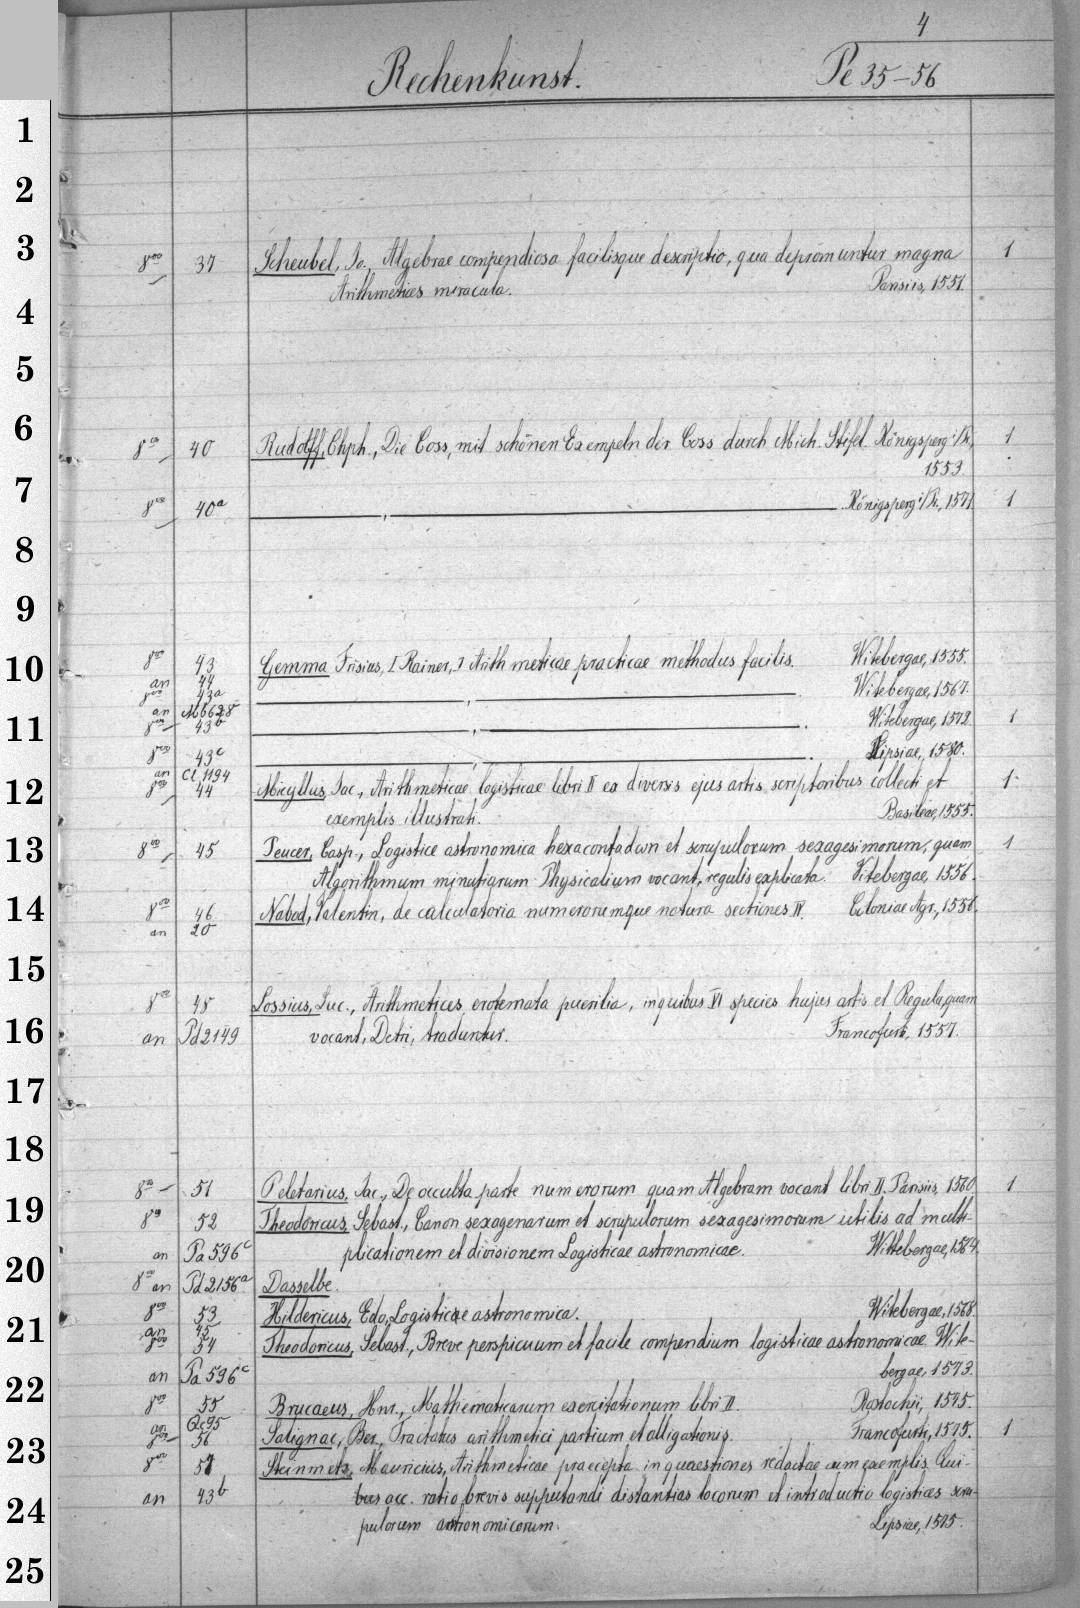 4
Rechenkunst. Pe 35-56
1
2
3
8vo 37 Scheubel, Jo., Algebrae compendiosa facilisque descriptio, qua depromuntur magna 1
Arithmetices miracula. Parisiis, 1551.
4
5
6
8vo 40 Rudolff, Chph., Die Coss, mit schönen Exempeln der Coss durch Mich. Stifel. Königsperg i/Pr, 1
1553.
7
8vo 40a ———, ——— Königsperg i/Pr., 1571. 1
8
9
10
8vo 43 Gemma Frisius, [Rainer,] Arithmeticae practicae methodus facilis. Witebergae, 1555.
an 44
8vo 43a ———, ———. Witebergae, 1567.
an Mb628
11
8vo 43b ———, ———. Witebergae, 1572. 1
8vo 43c ———, ———. Lipsiae, 1580.
an Cl 1194
12
8vo 44 Micyllus, Jac., Arithmeticae logisticae libri II ex diversis ejus artis scriptoribus collecti et 1
exemplis illustrati. Basileae, 1555.
13
8vo 45 Peucer, Casp., Logistice astronomica hexacontadwn et scrupulorum sexagesimorum, quam 1
Algorithmum minutiarum Physicalium vocant, regulis explicata. Vitebergae, 1556.
14
8vo 46 Nabod, Valentin, de calculatoria numerorumque natura sectiones IV. Coloniae Agr., 1556.
an 20
15
8vo 48 Lossius, Luc., Arithmetices erotemata puerilia, in quibus VI species hujus artis et Regula, quam
16
an Pd2149 vocant, Detri, traduntur. Francofurti, 1557.
17
18
8vo 51 Peletarius, Jac., De occulta parte numerorum quam Algebram vocant libri II. Parisiis, 1560 1
19
8vo 52 Theodoricus, Sebast., Canon sexagenarum et scrupulorum sexagesimorum utilis ad multi-
an Pa 596c plicationem et divisionem Logisticae astronomicae. Wittebergae, 1564.
20
8vo an Pd2156a Dasselbe.
8vo 53 Hildericus, Edo, Logisticae astronomica. Witebergae, 1568.
an 45
21
8vo 54 Theodoricus, Sebast., Breve perspicuum et facile compendium logisticae astronomicae. Wite-
an Pa 596c bergae, 1573.
22
8vo 55 Brucaeus, Hnr., Mathematicarum exercitationum libri II. Rostochii, 1575.
an Qc95
8vo 56 Salignac, Ber., Tractatus arithmetici partium et alligationis. Francofurti, 1575. 1
23
8vo 57 Steinmetz, Mauricius, Arithmeticae praecepta in quaestiones redactae cum exemplis. Qui-
an 43b bus acc. ratio brevis supputandi distantias locorum et introductio logistices scru-
24
pulorum astronomicorum. Lipsiae, 1575.
25